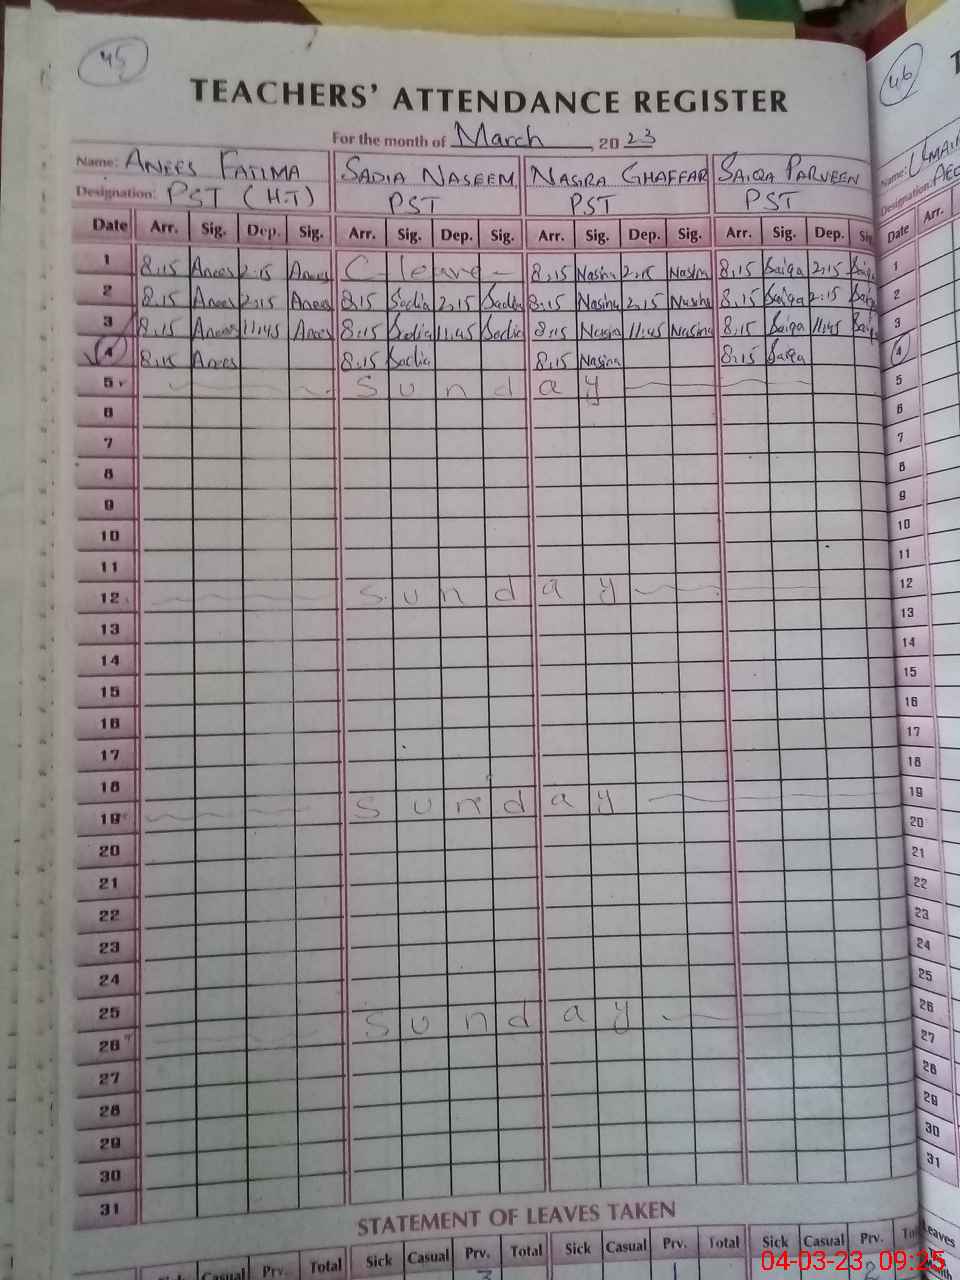 45
TEACHERS' ATTENDANCE REGISTER
For the month of March, 2023
Name: ANEES FATIMA SADIA NASEEM NASIRA GHAFFAR SAIQA PARVEEN
Designation: PST (H.T) PST PST PST
Date Arr. Sig. Dep. Sig. Arr. Sig. Dep. Sig. Arr. Sig. Dep. Sig. Arr. Sig. Dep. Sig
1 8,15 Anees 2:15 Anees C-leave- 8,15 Nasira 2,15 Nasira 8,15 Saiqa 2:15 Saiqa
2 8,15 Anees 2:15 Anees 8,15 Sadia 2,15 Sadia 8,15 Nasira 2,15 Nasira 8,15 Saiqa 2:15 Saiqa
3 8:15 Anees 11:45 Anees 8:15 Sadia 11:45 Sadia 8:15 Nasira 11:45 Nasira 8,15 Saiqa 11:45 Saiqa
4 8,15 Anees 8:15 Sadia 8:15 Nasira 8:15 Saiqa
5 Sunday
6
7
8
9
10
11
12 Sunday
13
14
15
16
17
18
19 Sunday
20
21
22
23
24
25
26 Sunday
27
28
29
30
31
STATEMENT OF LEAVES TAKEN
Sick Casual Prv. Total Sick Casual Prv. Total Sick Casual Prv. Total Sick Casual Prv.
3 1
46
Name:
Designation:
Date Arr.
1
2
3
4
5
6
7
8
9
10
11
12
13
14
15
16
17
18
19
20
21
22
23
24
25
26
27
28
29
30
31
Leaves
04-03-23 09:25